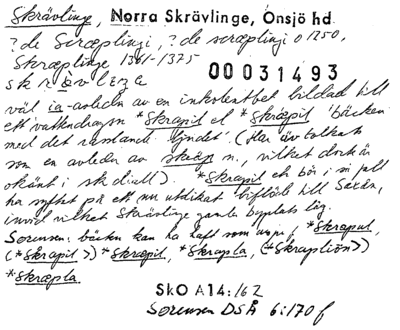 Skrävlinge, Norra Skrävlinge, Onsjö hd
?de Scræplingi, ?de scræplingi o 1250,
Skræplinge 1361-1375
00031493
väl ia-avledn av en inkolentbet bildad till
ett vattendragsn *Skrapil el *Skræpil 'bäcken
med det rasslande ljudet'. (Har äv tolkats
som en avledn av skräp n., vilket dock är
okänt i sk diall). *Skrapil el bör i så fall
ha syftat på ett nu utdikat biflöde till Saxån,
invid vilket Skrävlinge gamla byplats låg.
Sørensen: bäcken kan ha haft som namn *Skrapul,
(*Skrapil>) *Skræpil, *Skrapla, (*Skraplion>)
*Skræpla.
SkO A 14:162
Sørensen DSÅ 6:170 f